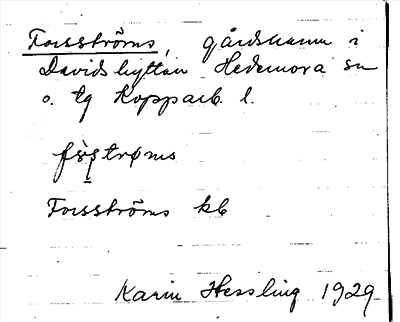 Forsströms, gårdsnamn i
Davidshyttan Hedemora sn
o. tg Kopparb. l.
Forsströms kb
Karin Hessling 1929